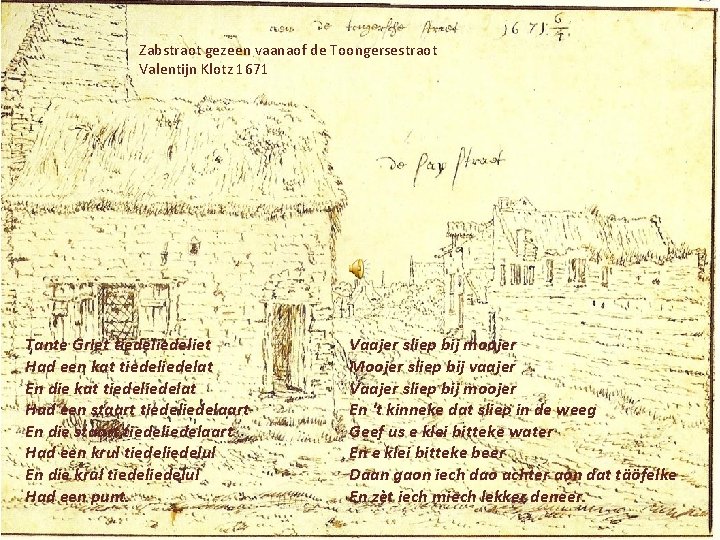 aen de tongersche straet 1671. 6/4.
Zabstraot gezeen vaanaof de Toongersestraot
Valentijn Klotz 1671
de Sap straet
Tante Griet tiedeliedeliet
Had een kat tiedeliedelat
En die kat tiedeliedelat
Had een staart tiedeliedelaart
En die staart tiedeliedelaart
Had een krul tiedeliedelul
En die krul tiedeliedelul
Had een punt.
Vaajer sliep bij moojer
Moojer sliep bij vaajer
Vaajer sliep bij moojer
En 't kinneke dat sliep in de weeg
Geef us e klei bitteke water
En e klei bitteke beer
Daan gaon iech dao achter aon dat täöfelke
En zèt iech miech lekker deneer.